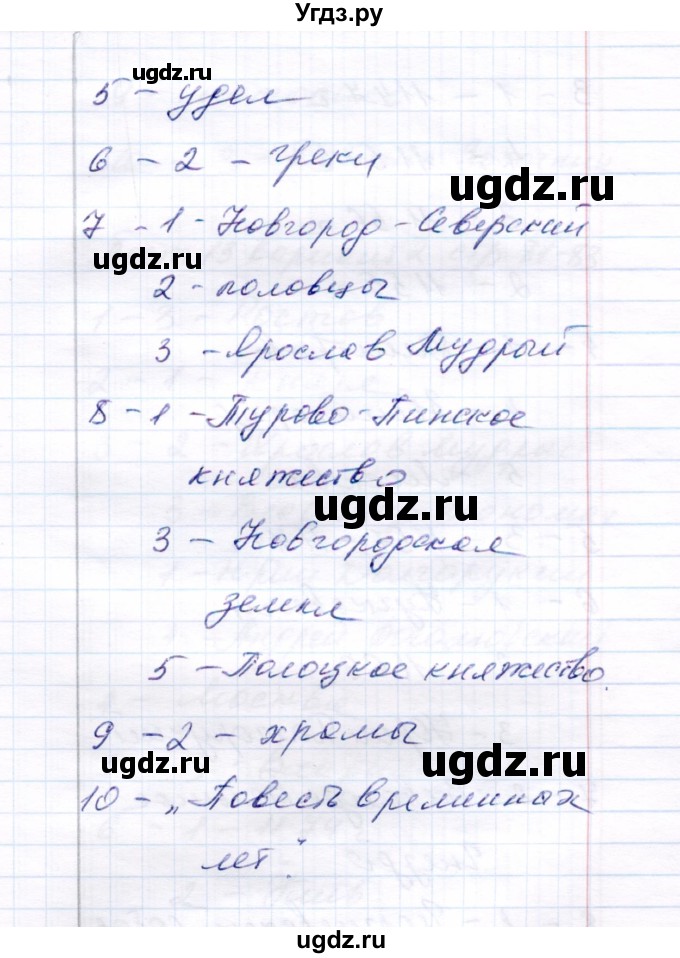 Угдз.ру
ugdz.ru
5 - удел
6 - 2 - греки
ugdz.ru
7 - 1 - Новгород-Северский
ugdz.ru
2 - половцы
3 - Ярослав Мудрый
8 - 1 - Турово-Пинское
княжество
ugdz.ru
3 - Новгородская
земля
5 - Полоцкое княжество
9 - 2 - храмы
ugdz.ru
ugdz.ru
10 - „Повесть временных
лет."
ugdz.ru